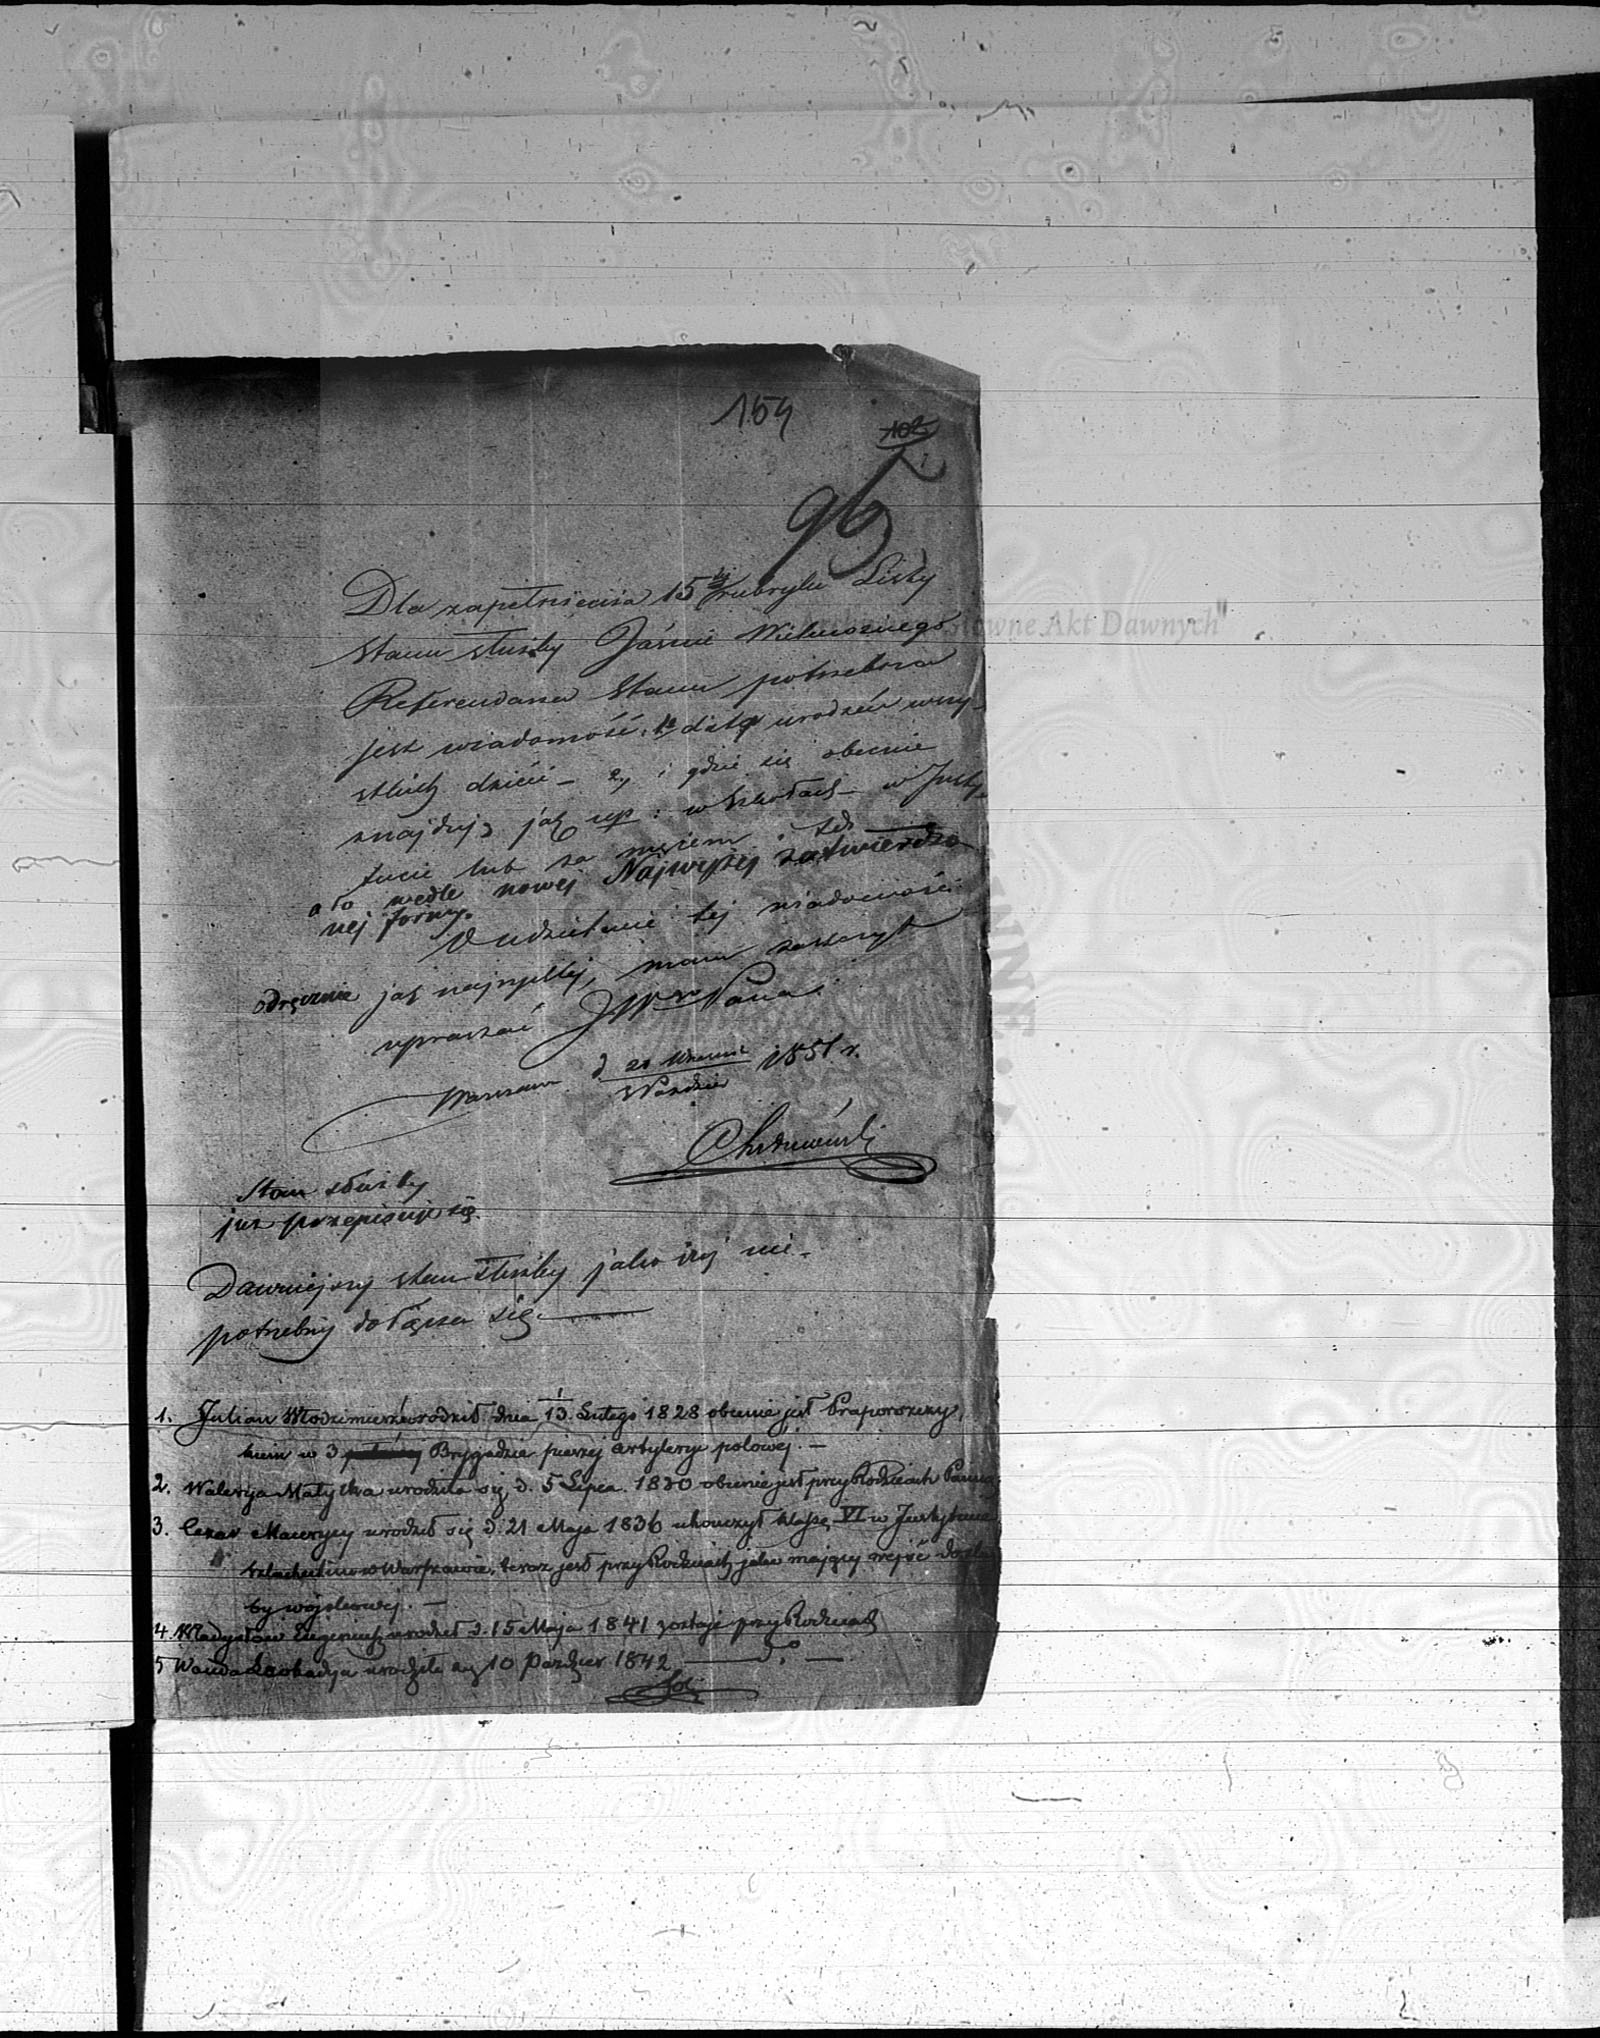 154
102
95
Dla zapełnienia 15tej rubryki Listy
Stanu służby Jaśnie Wielmożnego
Referendarza Stanu potrzebna
jest wiadomość, 1e data urodzeń wszy-
stkich dzieci – 2, i gdzie się obecnie
znajdują jak np: w szkołach – w Insty-
tucie lub za mężem
a to wedle nowej Najwyżej zatwierdzo
nej formy.
O udzielenie tej wiadomości
odręcznie jak najrychlej, mam zaszczyt
upraszać JWgo Pana.
Warszawa d 20 Września 1851 r.
Paździer
Stan służby
już przepisuje się.
Dawniejszy stan służby jako iuż nie-
potrzebny dołącza się.
1. Julian Włodzimierz urodził dnia 1/13 Lutego 1828 obecnie jest Praporszczy,
kiem w 3 Brygadzie pieszej artyleryi polowej. –
2. Walerya Matylda urodziła się d. 5 Lipca 1830 obecnie jest przy Rodzicach Panna
3. Cezar Maurycy urodził się d. 21 Maja 1836 ukończył klassę VI w Instytucie
Szlacheckim w Warszawie, teraz jest przy Rodzicach jako mający wejść do służ
by wojskowej. –
4. Władysław Eugeniusz urodził d. 15 Maja 1841 zostaje przy Rodzicach
5 Wanda Leokadya urodziła się 10 Paździer. 1842 — do —
Główne Akt Dawnych"